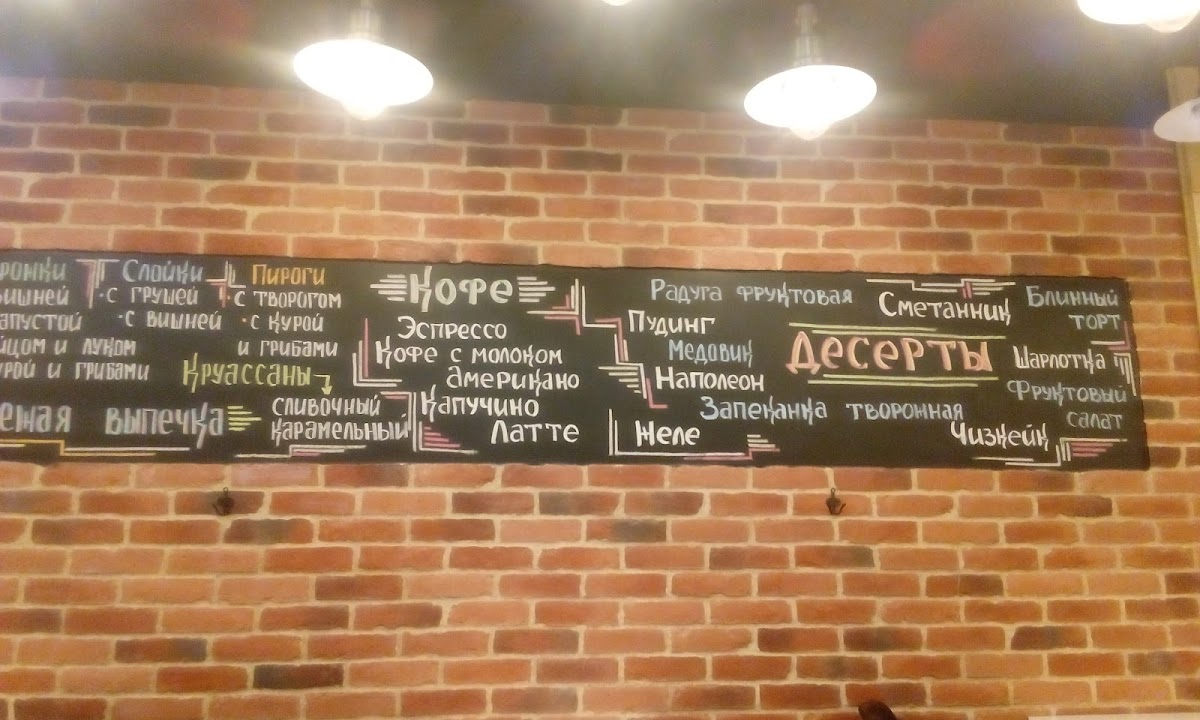 Слойки
• с грушей
• с вишней
Пироги
• с творогом
• с курой
и грибами
вишней
яйцом и луком
и грибами
выпечка
Круассаны
сливочный
карамельный
Кофе
Эспрессо
Кофе с молоком
американо
Капучино
Латте
Десерты
Радуга фруктовая
Сметанник
Блинный
торт
Пудинг
Медовик
Наполеон
Шарлотка
Фруктовый
салат
Запеканка творожная
Желе
Чизкейк